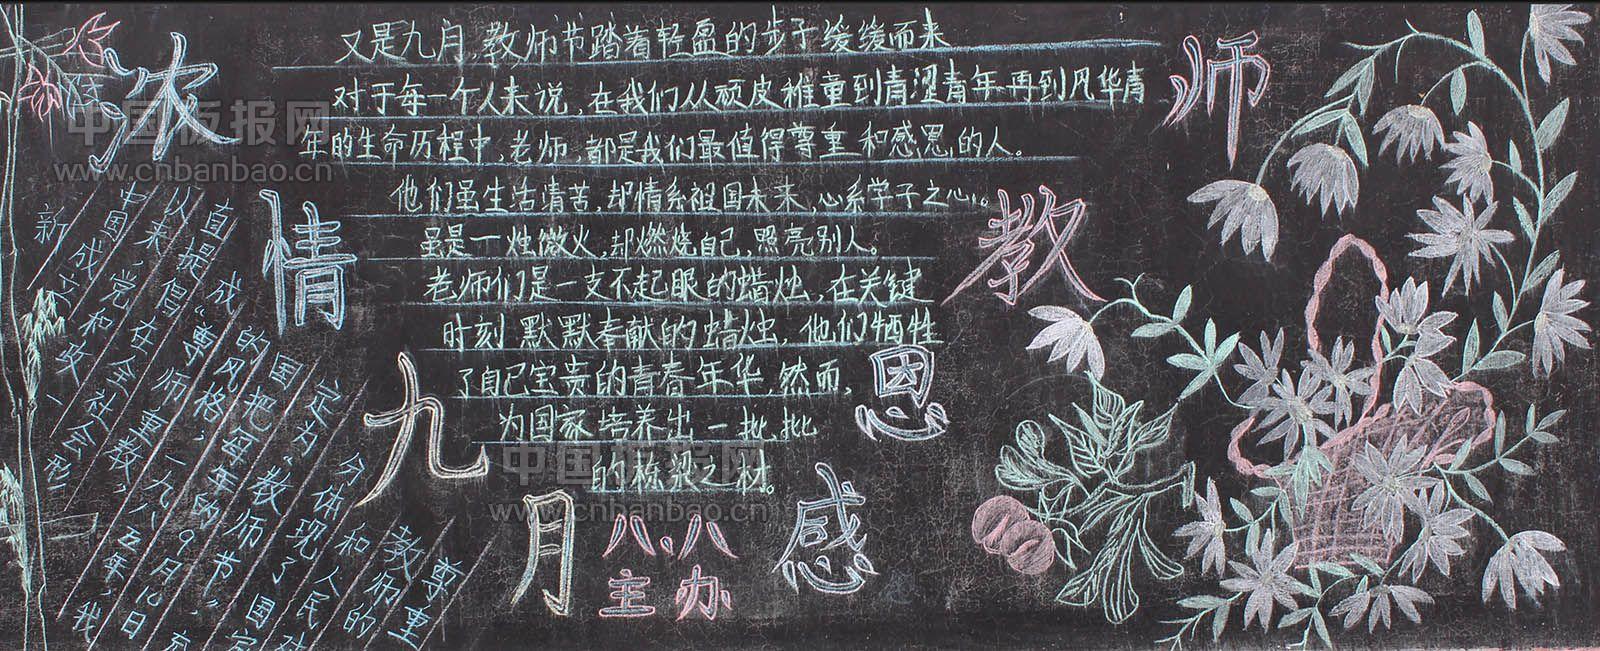 浓情九月
感恩教师
又是九月,教师节踏着轻盈的步子缓缓而来
对于每一个人来说,在我们从顽皮稚重到青涩青年再到风华青
年的生命历程中,老师,都是我们最值得尊重和感恩的人。
他们虽生活清苦,却情系祖国未来,心系学子之心。
虽是一烛微火,却燃烧自己,照亮别人。
老师们是一支不起眼的蜡烛,在关键
时刻默默奉献的蜡烛,他们牺牲
了自己宝贵的青春年华,然而,
为国家培养出一批批
的栋梁之材。
八.八
主办
新
中国成立
以来,党和央一
直提倡在全社会形
成“尊师重教”
的风格,一九八五年,我
国把每年的9月10日
定为“教师节”,充
分体现了国家
和人民对
教师的
尊重
中国板报网
www.cnbanbao.cn
中国板报网
www.cnbanbao.cn